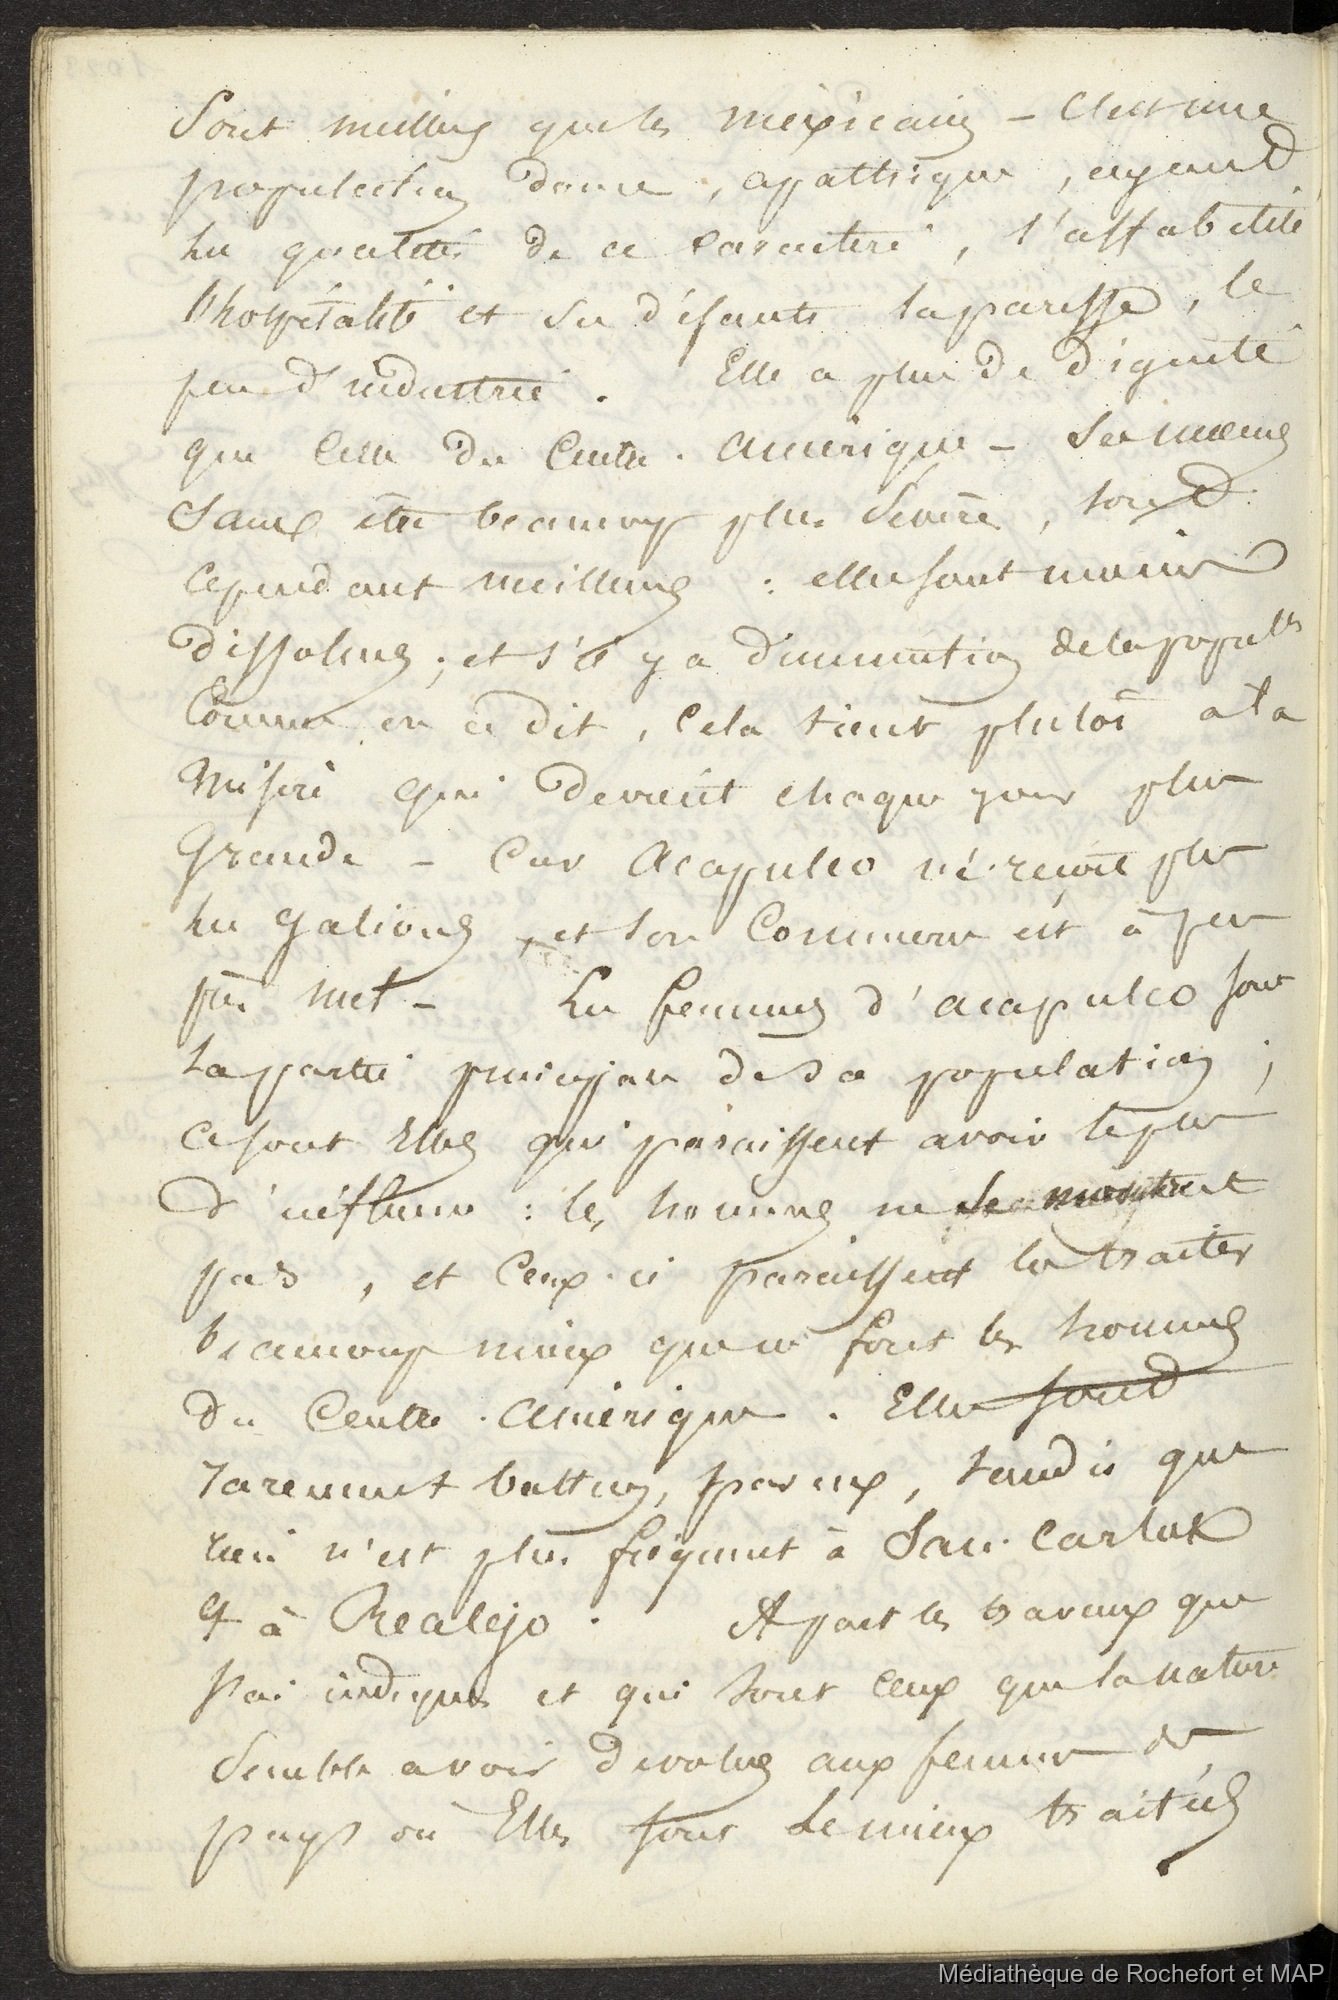 Sont meilleurs que les mexicains – C'est une
population douce, apathique, ayant
les qualités de ce caractère, l'affabilité
l'hospitalité et ses défauts la paresse, le
peu d'industrie. Elle a plus de dignité
que celle du Centre-Amérique – Ses mœurs
sans être beaucoup plus sévères, sont
cependant meilleures : elles sont moins
dissolues ; et s'il y a diminution de la popul.on
comme on a dit, cela tient plutôt à la
misère qui devient chaque jour plus
grande – Car Acapulco ne reçoit plus
les galions, et son commerce est à peu
près nul – Les femmes d'acapulco sont
la partie principale de sa population ;
ce sont elles qui paraissent avoir le plus
d'influence : les hommes ne se montrent
pas, et ceux-ci paraissent les traiter
beaucoup mieux que ne font les hommes
du Centre-Amérique. Elles sont
rarement battues, par eux, tandis que
rien n'est plus fréquent à San-Carlos
et à Realejo. A part les travaux que
j'ai indiqués et qui sont ceux que la nature
semble avoir dévolus aux femmes des
pays où Elles sont le mieux traitées
Médiathèque de Rochefort et MAP